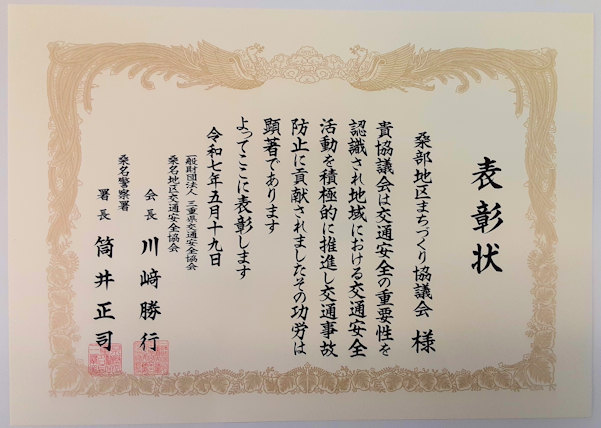 表彰状
桑部地区まちづくり協議会 様
貴協議会は交通安全の重要性を
認識され地域における交通安全
活動を積極的に推進し交通事故
防止に貢献されましたその功労は
顕著であります
よってここに表彰します
令和七年五月十九日
一般財団法人 三重県交通安全協会
桑名地区交通安全協会
会長 川﨑勝行
桑名警察署
署長 筒井正司